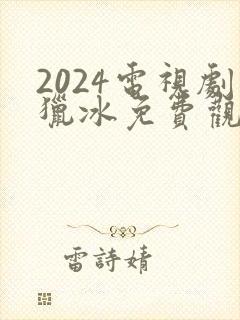 2024電視劇
獵冰免費觀
雷詩婧